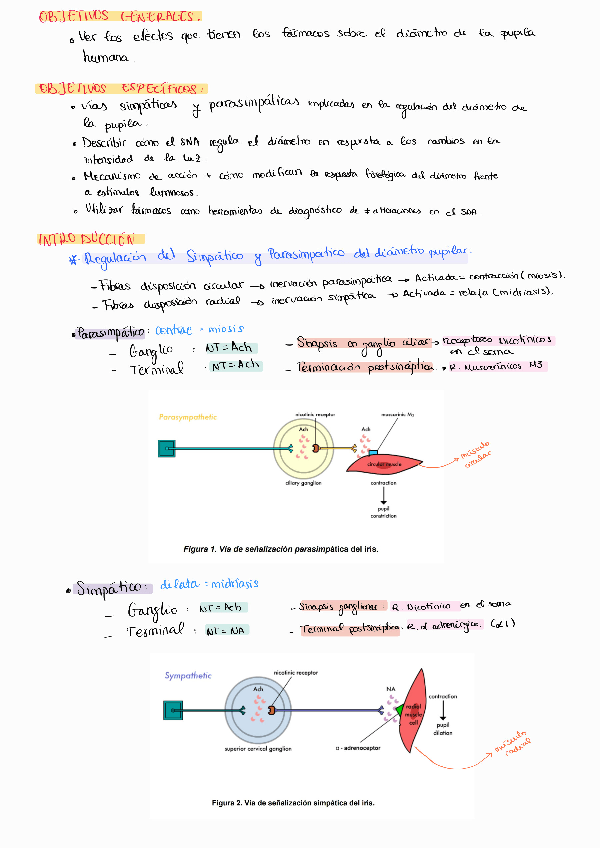 OBJETIVOS GENERALES.
• Ver los efectos que tienen los fármacos sobre el diámetro de la pupila
humana
OBJETIVOS ESPECÍFICOS:
• Vías simpáticas y parasimpáticas implicadas en la regulación del diámetro de
la pupila.
• Describir cómo el SNA regula el diámetro en respuesta a los cambios en la
intensidad de la luz
• Mecanismo de acción + cómo modifican la respuesta fisiológica del diámetro frente
a estímulos luminosos.
• Utilizar fármacos como herramientas de diagnóstico de ≠ alteraciones en el SNA
INTRODUCCIÓN
*. Regulación del Simpático y Parasimpático del diámetro pupilar.
- Fibras disposición circular → inervación parasimpática → Activada = contracción (miosis).
- Fibras disposición radial → inervación simpática → Activada = relaja (midriasis).
• Parasimpático: contrae = miosis
- Ganglio : NT = Ach
- Sinapsis en ganglio ciliar → Receptores nicotínicos
en el soma
- Terminal : NT = Ach
- Terminación postsináptica → R. Muscarínicos M3
Parasympathetic
nicotinic receptor
muscarinic M3
Ach
Ach
circular muscle
ciliary ganglion
contraction
pupil
constriction
músculo
circular
Figura 1. Vía de señalización parasimpática del iris.
• Simpático: dilata = midriasis
- Ganglio : NT = Ach
- Sinapsis ganglionar : R. Nicotínico en el soma
- Terminal : NT = NA
- Terminal postsináptica : R. α adrenérgico. (α1)
Sympathetic
nicotinic receptor
Ach
NA
radial
muscle
cell
contraction
pupil
dilation
superior cervical ganglion
α - adrenoceptor
músculo
radial
Figura 2. Vía de señalización simpática del iris.